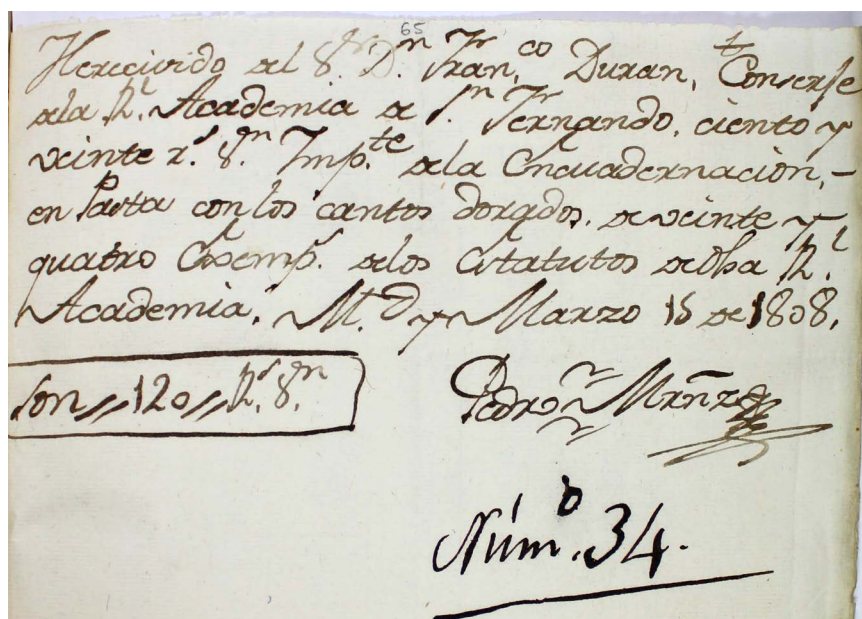 65
He recivido del S.r D.n Fran.co Duran, Conserje
dela R.l Academia de S.n Fernando, ciento y
veinte r.s v.n Imp.te dela Encuadernacion,
en Pasta con los cantos dorados, de veinte y
quatro Exemp.s delos Estatutos dedha R.l
Academia. M.d y Marzo 15 de 1808.
Son,,120,,R.s v.n
Pedro
Núm.o 34.